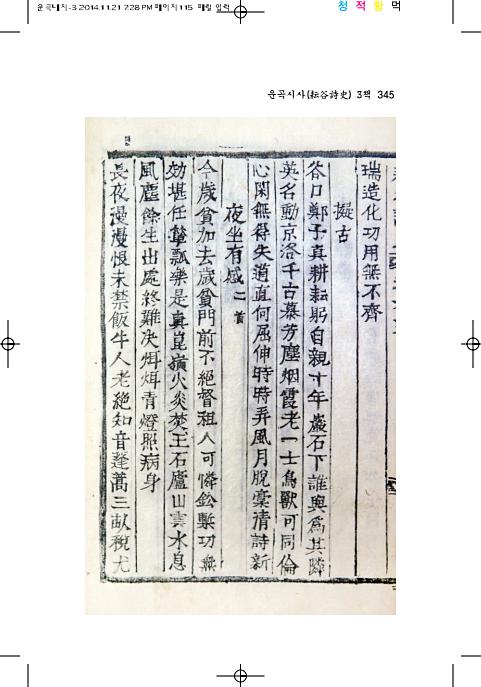 운곡시사-3 2014.11.21 7:28 PM 페이지115 매킨
청 적 황 먹
운곡시사(耘谷詩史) 3책 345
瑞造化功用無不齊
擬古
谷口鄭子真耕耘躬自親十年巖石下誰與爲其隣
英名動京洛千古慕芳塵烟霞老一士鳥獸可同倫
心閑無得失道直何屈伸時時弄風月脫槀淸詩新
夜坐有感 二首
今歲貧加去歲貧門前不絶督租人可憐鈆槧功無
效堪任簞瓢樂是真崑嶺火炎焚玉石廬山雲水息
風塵餘生出處終難決炯炯靑燈照病身
長夜漫漫恨未禁飯牛人老絶知音蓬蒿三畝稅尤